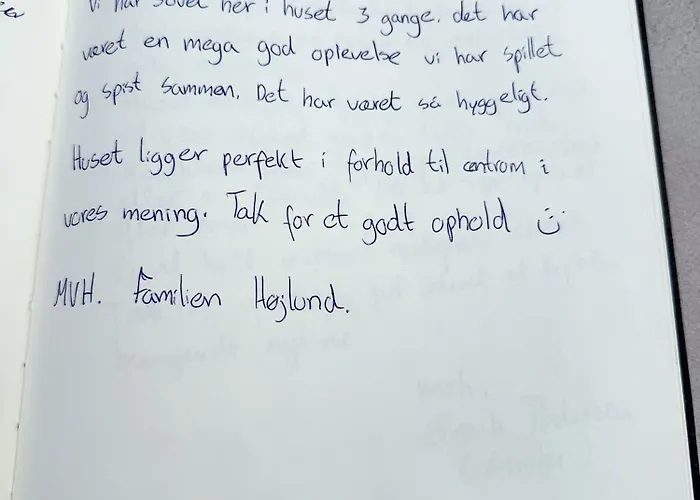 Vi har sovet her i huset 3 gange. det har
været en mega god oplevelse vi har spillet
og spist sammen. Det har været så hyggeligt.
Huset ligger perfekt i forhold til centrom i
vores mening. Tak for et godt ophold :)
MVH. Familien Højlund.